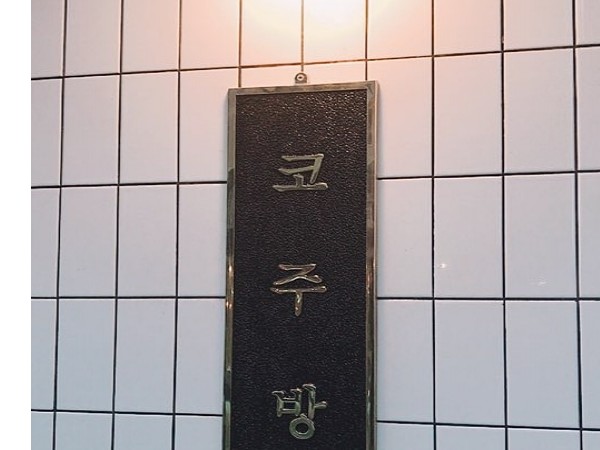 코주방